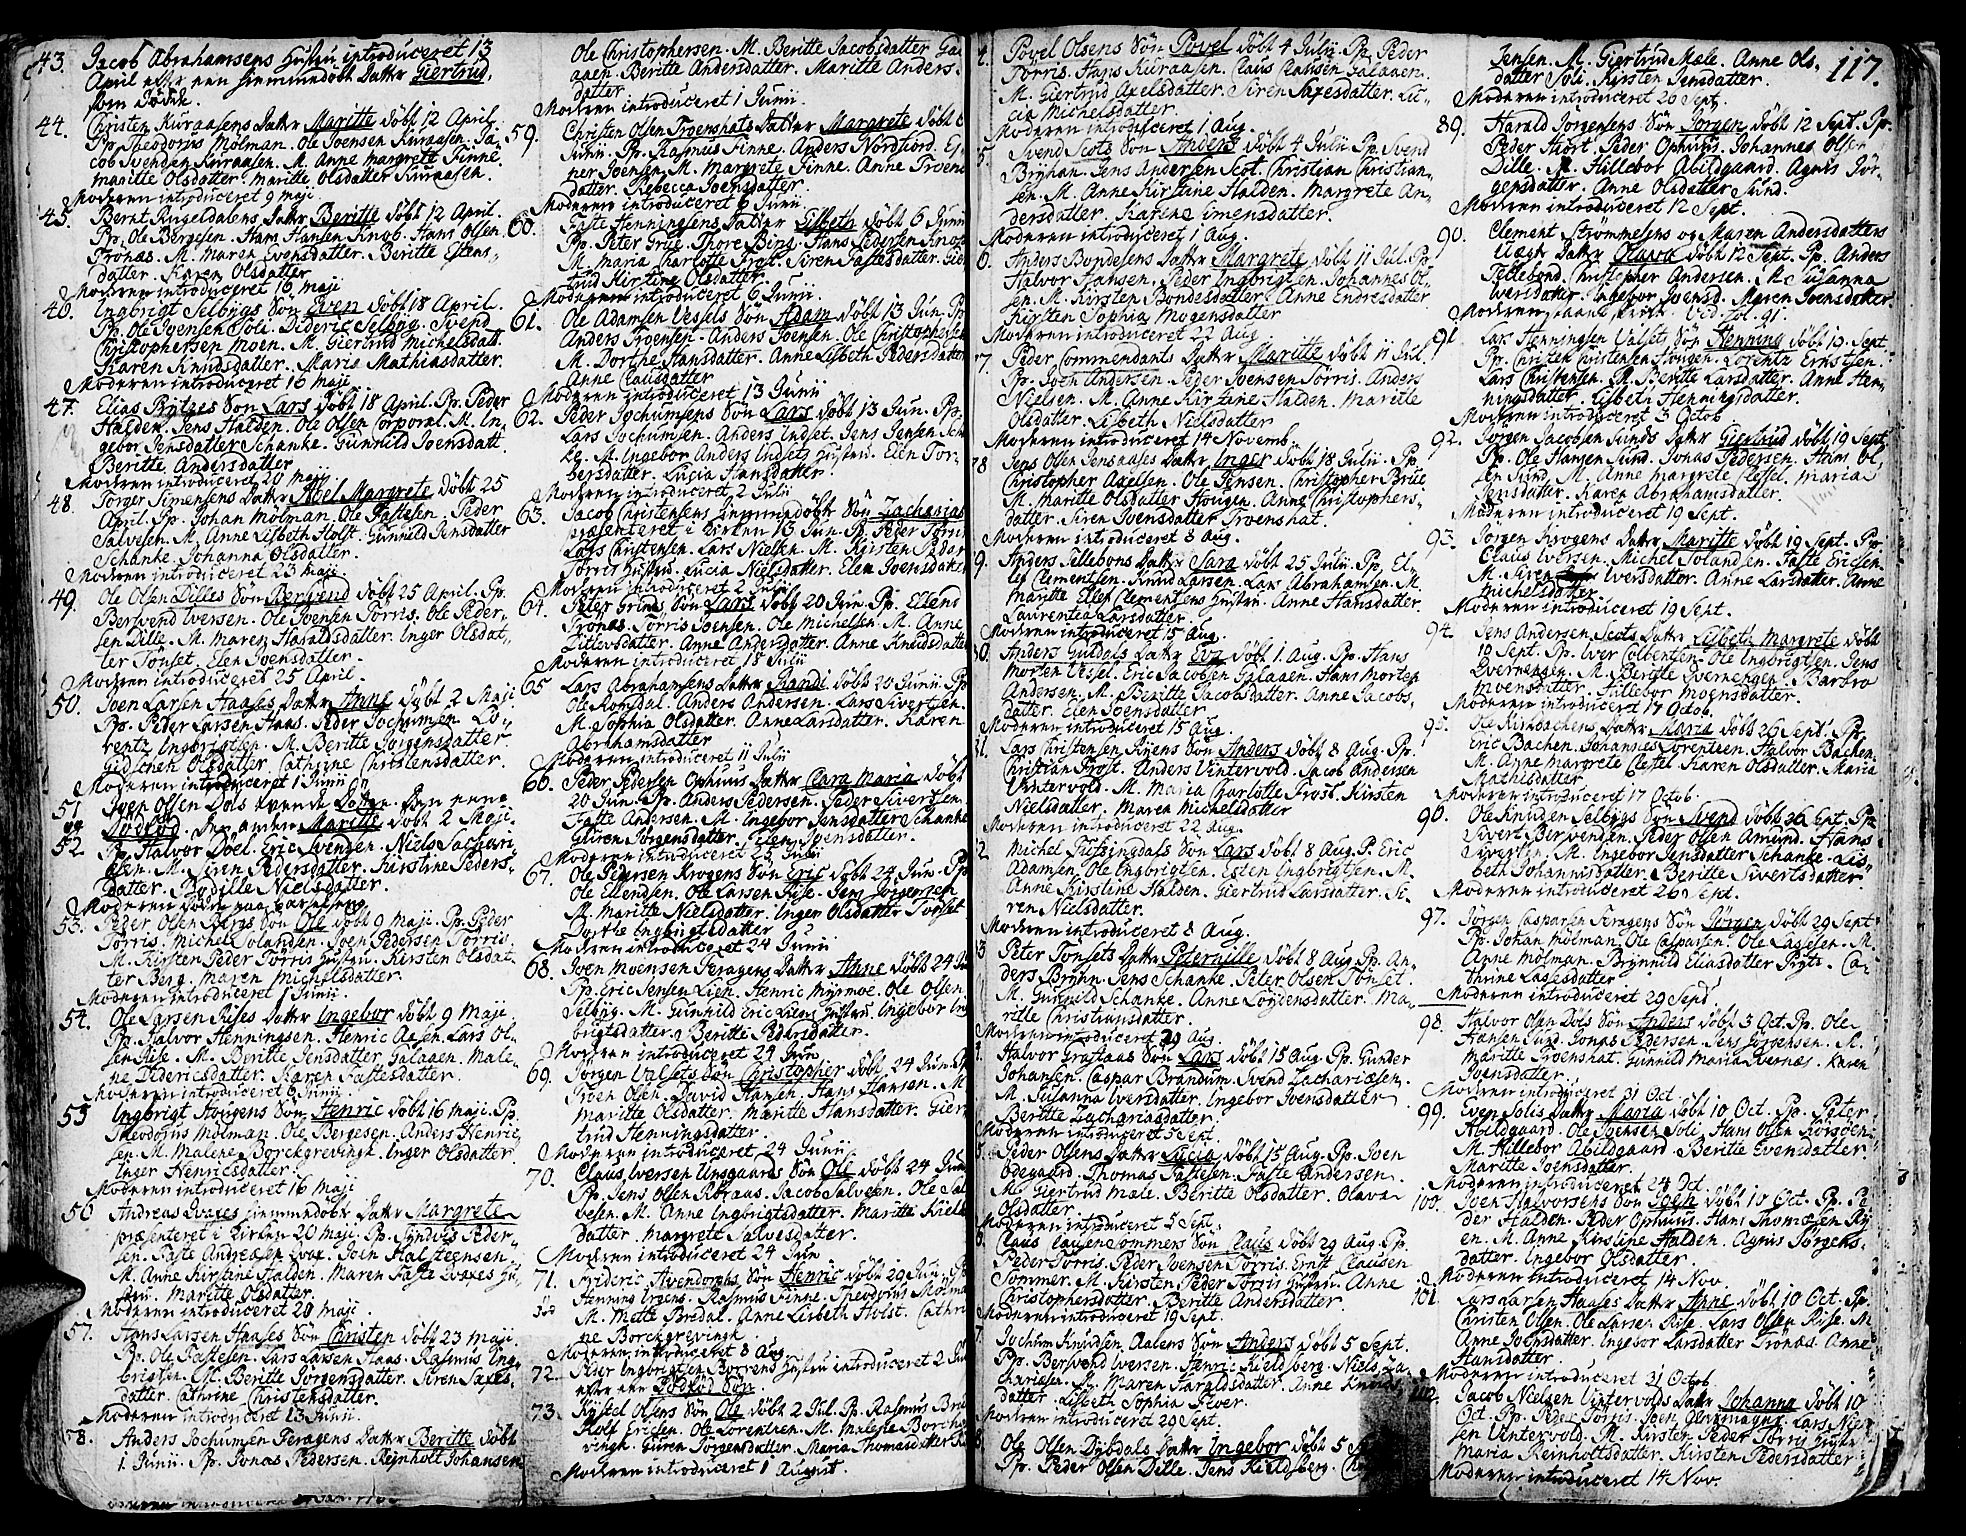 43. Jacob Abrahamsens Hustru introduceret 13
April efter een hiemmedøbt Datter Giertrud,
som døde.
44. Christen Kuraasens Datter Maritte døbt 12 April.
Pp. Theodorus Mölman. Ole Joensen Kuraasen. Ja-
cob Svendsen Kuraasen. M. Anne margrete Finne.
maritte Olsdatter. Maritte Olsdatter Kuraasen.
Moderen introduceret 9 maji
45. Bernt Ringeldalens Datter Beritte døbt 12 April.
Pp. Ole Bergesen. Hans Hansen Knob. Hans Olsen
Trønæs. M. Maren Evensdatter. Beritte Estens-
datter. Karen Olsdatter
Moderen introduceret 16 maji
46. Ingbrigt Selbygs Søn Even døbt 18 April.
Pp. Ole Joensen Soli. Dideric Selbyg. Svend
Christophersen Moen. M. Giertrud Michelsdatt.
Karen Knudsdatter. Maria Mathiasdatter.
Moderen introduceret 16 maji
47. Elias Prytzes Søn Lars døbt 18 April. Pp. Peder
Halden. Jens Halden. Ole Olsen Corporal. M. In-
gebor Jensdatter Schanke. Gunnild Joensdatt.
Beritte Andersdatter
Moderen introduceret 20 maji
48. Jörger Simensens Datter Abel Margrete døbt 25
April. Pp. Johan Mölman. Ole Fastesen. Peder
Salvesen. M. Anne Lisbeth Holst. Gunnild Jensdatter
Schanke. Johanna Olsdatter.
Moderen introduceret 23 maji
49. Ole Olsen Dilles Søn Bersvend døbt 25 April. Pp.
Bersvend Iversen. Ole Joensen Törris. Ole Peder-
sen Dille. M. Maren Haraldsdatter. Inger Olsdat-
ter Tönset. Elen Joensdatter.
Moderen introduceret 25 April.
50. Joen Larsen Haases Datter Anne døbt 2 Maji
Pp. Peder Larsen Haas. Peder Jochumsen. Lo-
rentz Ingbrigtsen. M. Beritte Jörgensdatter.
Gidschen Olsdatter. Cathrine Christensdatter.
Moderen introduceret 1 Junii
51 og 52. Iven Olsen Döls tvende Døttre den eene
Dødfød den anden Maritte døbt 2 Maji.
Pp. Halvor Döel. Eric Svensen. Niels Sachari-
esen. M. Siren Pedersdatter. Kirstine Peders-
datter. Bodille Nielsdatter.
53. Peder Olsen Bergs Søn Ole døbt 9 maji. Pp. Peder
Törris. Michel Tolandsen. Joen Pedersen Törris.
M. Kirsten Peder Törris Hustru. Kirsten Olsdat-
ter Berg. Maren Michelsdatter.
Moderen introduceret 1 Junii.
54. Ole Larsen Rises Datter Ingebor døbt 9 Maji.
Pp. Halvor Henningsen. Henric Aasen. Lars Ol-
sen Rise. M. Beritte Jensdatter Galaaen. Male-
ne Pedericsdatter. Karen Fastesdatter.
Moderen introduceret 6 Junii.
55 Ingbrigt Hougens Søn Henric døbt 16 maji. Pp.
Theodorus Mölman. Ole Bergesen. Anders Henric-
sen. M. Malene Borckgrevingk. Inger Olsdatter.
Inger Henricsdatter.
Moderen introduceret 16 maji
56 Andreas Loxes hiemmedøbt Datter Margrete
præsenteret i Kirken 20 maji. Pp. Syndvis Peder-
sen. Faste Andreasen Loxe. Joen Halsteensen.
M. Anne Kirstine Halden. Maren Faste Loxes Hu-
stru. Maritte Olsdatter.
Moderen introduceret 20 maji.
57. Hans Larsen Haases Søn Christen døbt 23 maji
Pp. Ole Fastesen. Lars Larsen Haas. Rasmus Ing-
brigtsen. M. Beritte Jörgensdatter. Siren Saxes-
datter. Cathrine Christensdatter.
Moderen introduceret 13 Junii.
58. Anders Jochumsen Feragens Datter Beritte døbt
1. Junii. Pp. Jonas Pedersen. Reinholt Johansen
Ole Christophersen. M. Beritte Jacobsdatter Gal-
aaen. Beritte Andersdatter. Maritte Anders-
datter
Moderen introduceret 1 Junii.
59. Christen Olsen Troenshats Datter Margrete døbt 6
Junii. Pp. Rasmus Finne. Anders Nordfiord. E
ner Joensen. M. Margrete Finne. Anne Troens
datter. Rebecca Joensdatter.
Moderen introduceret 6 Junii
60. Faste Henningsens Datter Elsbeth døbt 6 Junii
Pp. Peter Grue. Thore Bing. Hans Pedersen Knof
M. Maria Charlotte Frost. Siren Fastesdatter. Gier
trud Kirstine Olsdatter
Moderen introduceret 6 Junii.
61. Ole Adamsen Vessels Søn Adam døbt 13 Jun. Pp
Anders Troensen. Anders Joensen. Ole Christophersen
M. Dorthe Hansdatter. Anne Lisbeth Pedersdatter
Anne Clausdatter
Moderen introduceret 13 Junii
62. Peder Jochumsens Søn Lars døbt 13 Jun. Pp.
Lars Jochumsen. Anders Indset. Jens Jensen Sch
ke. M. Ingebor Anders Indsets Hustru. Elen Tor-
bersdatter. Lucia Hansdatter
Moderen introduceret 2 Julii
63. Jacob Christensens hiemmedøbt Søn Zacharias
præsenteret i Kirken 13 Jun. Pp. Peder Törris
Lars Christensen. Lars Nielsen. M. Kirsten Peder
Törris Hustru. Lucia Nielsdatter. Elen Joensdatter
Moderen introduceret 2 Julii
64. Peter Grues Søn Lars døbt 20 Jun. Pp. Ellend
Trönæs. Törris Joensen. Ole Michelsen. M. Anne
Ditlevsdatter. Anne Andersdatter. Anne Knudsdatter
Moderen introduceret 18 Julii
65 Lars Abrahamsens Datter Randi døbt 20 Junii. Pp
Ole Romsdal. Anders Andersen. Lars Sivertsen.
M. Sophia Olsdatter. Anne Larsdatter. Karen
Abrahamsdatter
Moderen introduceret 11 Julii
66. Peder Pedersen Ophuus Datter Clara Maria døbt
20 Jun. Pp. Anders Pedersen. Peder Sivertsen.
Faste Andersen. M. Ingebor Jensdatter Schanke
Guren Jörgensdatter. Elen Joensdatter.
Moderen introduceret 25 Julii
67. Ole Pedersen Krogens Søn Eric døbt 24 Jun. Pp
Ole Ellendsen. Ole Larsen Rise. Jens Jörgensen
M. Maritte Nielsdatter. Inger Olsdatter Tönset.
Dorthe Ingbrigtsdatter
Moderen introduceret 24 Junii
68. Joen Moensen Feragens Datter Anne døbt 24 Ju
Pp. Eric Jensen Lien. Henric Myrmoe. Ole Olsen
Selbyg. M. Gunhild Eric Liens Hustru. Ingebor Ing
brigtsdatter. Beritte Pedersdatter.
Moderen introduceret 24 Jun
69. Jörgen Valsets Søn Christopher døbt 24 Jun. Pp
Troen Olsen. David Hansen. Hans Hanson. M
Maritte Olsdatter. Maritte Hansdatter. Gier
trud Henningsdatter.
Moderen introduceret 24 Junii
70. Claus Iversen Ensgaards Søn Ole døbt 24 Jun
Pp. Jens Olsen Rbraas. Jacob Salvesen. Ole Sal
vesen. M. Anne Ingbrigtsdatter. Maritte Kiels
datter. Margrete Salvesdatter.
Moderen introduceret 24 Jun
71. Frideric Avendorphs Søn Henric døbt 29 Jun. Pp
Henning Irgens. Rasmus Finne. Theodorus Mölman
M. Mette Bredal. Anne Lisbeth Holst. Cathri
ne Borckgrevingk.
Moderen introduceret 8 Aug.
72. Peder Ingbrigtsen Borrens Hustru introduceret 2 Jul
efter een Dødfød Søn.
73. Kystel Olsens Søn Ole døbt 2 Jul. Pp. Rasmus Bru
Rolf Ericsen. Ole Lorentzen. M. Malene Borchgre
vingk. Guren Jörgensdatter. Maria Thomasdatter
Moderen introduceret 1 August.
4. Povel Olsens Søn Povel døbt 4 Julii. Pp. Peder
Törris. Hans Kuraasen. Claus Clausen Galaaen.
M. Giertrud Axelsdatter. Siren Saxesdatter. Lu-
cia Michelsdatter.
Moderen introduceret 1 Aug.
5. Svend Scots Søn Anders døbt 4 Julii. Pp. Svend
Bryhan. Jens Andersen Scot. Christian Christian-
sen. M. Anne Kirstine Halden. Margrete An-
dersdatter. Karine Emensdatter.
Moderen introduceret 1 Aug.
6. Anders Bondesens Datter Margrete døbt 11 Jul. Pp.
Halvor Hansen. Peder Ingbrigtsen. Johannes Ol-
sen. M. Kirsten Bondesdatter. Anne Endresdatter
Kirsten Sophia Mogensdatter
Moderen introduceret 22 Aug.
7. Peder Commendants Datter Maritte døbt 11 Jul.
Pp. Joen Andersen. Peder Joensen Törris. Anders
Nielsen. M. Anne Kirstine Halden. Maritte
Olsdatter. Lisbeth Nielsdatter
Moderen introduceret 14 Novemb.
78 Jens Olsen Jensaases Datter Inger døbt 18 Julii. Pp
Christopher Axelsen. Ole Jensen. Christopher Brue
M. Maritte Olsdatter Hougen. Anne Christophers-
datter. Siren Joensdatter Troenshat.
Moderen introduceret 8 Aug.
9. Anders Tillebons Datter Sara døbt 25 Julii. Pp. El-
lef Clementsen. Knud Larsen. Lars Abrahamsen. M.
Maritte Ellef Clementsens Hustru. Anne Hansdatter.
Laurentea Larsdatter.
Moderen introduceret 15 Aug.
80. Anders Guldals Datter Eva døbt 1. Aug. Pp. Hans
Morten Vessel. Eric Jacobsen Galaaen. Hans Morten
Andersen. M. Beritte Jacobsdatter. Anne Jacobs-
datter. Elen Joensdatter
Moderen introduceret 15 Aug.
81. Lars Christensen Ryens Søn Anders døbt 8 Aug. Pp.
Christian Frost. Anders Vintervold. Jacob Andersen
Vintervold. M. Maria Charlotte Frost. Kirsten
Nielsdatter. Maren Michelsdatter
Moderen introduceret 22 Aug.
2. Michel Flesingdals Søn Lars døbt 8 Aug. P. Eric
Adamsen. Ole Ingbrigtsen. Esten Ingbrigtsen. M.
Anne Kirstine Halden. Giertrud Larsdatter. Si-
ren Nielsdatter.
Moderen introduceret 8 Aug.
3 Peter Tönsets Datter Peternille døbt 8 Aug. Pp. An-
ders Bryhn. Jens Schanke. Peter Olsen Tönset.
M. Gunnild Schanke. Anne Löydensdatter. Ma-
ritte Christiansdatter.
Moderen introduceret 29 Aug.
4. Halvor Graftaas Søn Lars døbt 15 Aug. Pp. Gunder
Johansen. Caspar Brandum. Svend Zachariasen.
M. Susanna Iversdatter. Ingebor Joensdatter
Beritte Zachariasdatter.
Moderen introduceret 5 Sept.
5. Peder Olsens Datter Lucia døbt 15 Aug. Pp. Joen
Ödegaard. Thomas Fastesen. Faste Andersen.
M. Giertrud Mæle. Beritte Olsdatter. Olava
Olsdatter.
Moderen introduceret 5 Sept.
6. Claus Clausen Sommers Søn Claus døbt 29 Aug. Pp.
Peder Törris. Peder Joensen Törris. Ernst Clausen
Sommer. M. Kirsten Peder Törris Hustru. Anne
Christophersdatter. Beritte Andersdatter.
Moderen introduceret 19 Sept.
7. Jochum Knudsen Aalens Søn Anders døbt 5 Sept.
Pp. Bersvend Iversen. Henric Kieldsberg. Niels Za-
chariesen. M. Maren Haraldsdatter. Anne Knuds-
datter. Lisbeth Sophia Fever.
Moderen introduceret 20 Sept.
8. Ole Olsen Dybdals Datter Ingebor døbt 5 Sept
Pp. Peder Olsen Dille. Jens Kieldsberg.
117.
Jensen. M. Giertrud Mæle. Anne Ols-
datter Soli. Kirsten Jensdatter.
Moderen introduceret 26 Sept.
89. Harald Jörgensens Søn Jörgen døbt 12 Sept. Pp.
Peder Hiort. Peder Ophuus. Johannes Olsen
Dille. M. Hillebor Abildgaard. Agnis Jör-
gensdatter. Anne Olsdatter Sund.
Moderen introduceret 12 Sept.
90. Clement Strömmesens og Maren Andersdatters
Uægte Datter Olava døbt 12 Sept. Pp. Anders
Tillebond. Christopher Andersen. M. Susanna
Iversdatter. Ingebor Joensd. Maren Joensdatter
Moderen vid. fol. 91.
91 Lars Henningsen Valsets Søn Henning døbt 19 Sept.
Pp. Christen Christensen Hougen. Lorentz Ernstsen.
Lars Christensen. M. Beritte Larsdatter. Anne Hen-
ningsdatter. Lisbeth Henningsdatter.
Moderen introduceret 3 Octob
92. Jörgen Jacobsen Sunds Datter Giertrud døbt 19 Sept.
Pp. Ole Hansen Sund. Jonas Pedersen. Hans Ol-
sen Sund. M. Anne Margrete Klessel. Maria
Jensdatter. Karen Abrahamsdatter.
Moderen introduceret 19 Sept.
93. Jörgen Krogens Datter Maritte døbt 19 Sept. Pp
Claus Iversen. Michel Tolandsen. Faste Ericsen.
M. Siren Iversdatter. Anne Larsdatter. Anne
Michelsdatter
Moderen introduceret 19 Sept.
94. Jens Andersen Scots Datter Lisbeth Margrete døbt
19 Sept. Pp. Iver Colbentsen. Ole Ingbrigtsen. Jens
Qvernengen. M. Beritte Qvernengen. Barbro
Moensdatter. Hillebor Moensdatter.
Moderen introduceret 17 Octob.
95. Ole Kirkbachens Datter Maria døbt 26 Sept. Pp.
Eric Bachen. Johannes Lorentsen. Halvor Bachen.
M. Anne Margrete Clessel. Karen Olsdatter. Maria
Mathisdatter
Moderen introduceret 17 Octob.
96. Ole Knudsen Selbygs Søn Svend døbt 26 Sept. Pp
Sivert Bersvendsen. Peder Olsen Aamund. Hans
Sivertsen. M. Ingebor Jensdatter Schanke. Lis-
beth Johannisdatter. Beritte Sivertsdatter.
Moderen introduceret 26 Sept.
97. Jörgen Casparsen Feragens Søn Jörgen døbt 29 Sept
Pp. Johan Mölman. Ole Casparsen. Ole Lagesen. M.
Anne Mölman. Brynnild Eliasdatter Prytz. Ca-
thrine Lagesdatter.
Moderen introduceret 29 Sept
98. Halvor Olsen Döls Søn Anders døbt 3 Oct. Pp. Ole
Hansen Sund. Jonas Pedersen. Jens Jörgensen. M.
Maritte Troenshat. Gunnild Maria Evernæs. Karen
Joensdatter.
Moderen introduceret 31 Oct.
99. Even Solis Datter Maria døbt 10 Oct. Pp. Peter
Abildgaard. Ole Joensen Soli. Hans Olsen Korsöen.
M. Hillebor Abildgaard. Beritte Evensdatter
Maritte Joensdatter.
Moderen introduceret 24 Oct.
100. Joen Halvorsens Søn Joen døbt 10 Oct. Pp. Pe-
der Halden. Peder Ophuus. Hans Thomæsen Ry-
en. M. Anne Kirstine Halden. Agnis Jörgens-
datter. Ingebor Olsdatter.
Moderen introduceret 14 Nov.
101. Lars Larsen Haases Datter Anne døbt 10 Oct. Pp.
Christen Olsen. Ole Larsen Rise. Lars Olsen Rise. M
Anne Jochumsdatter. Ingebor Larsdatter Trönæs. Anne
Hansdatter.
Moderen introduceret 31 Octob
102 Jacob Nielsen Vintervolds Datter Johanna døbt 10
Oct. Pp. Peder Törris. Joen Lars Niel-
sen Vintervold. M. Kirsten Peder Törris Hustr.
Maria Reinholtsdatter. Kirsten Pedersdatter
Moderen introduceret 14 Nov.